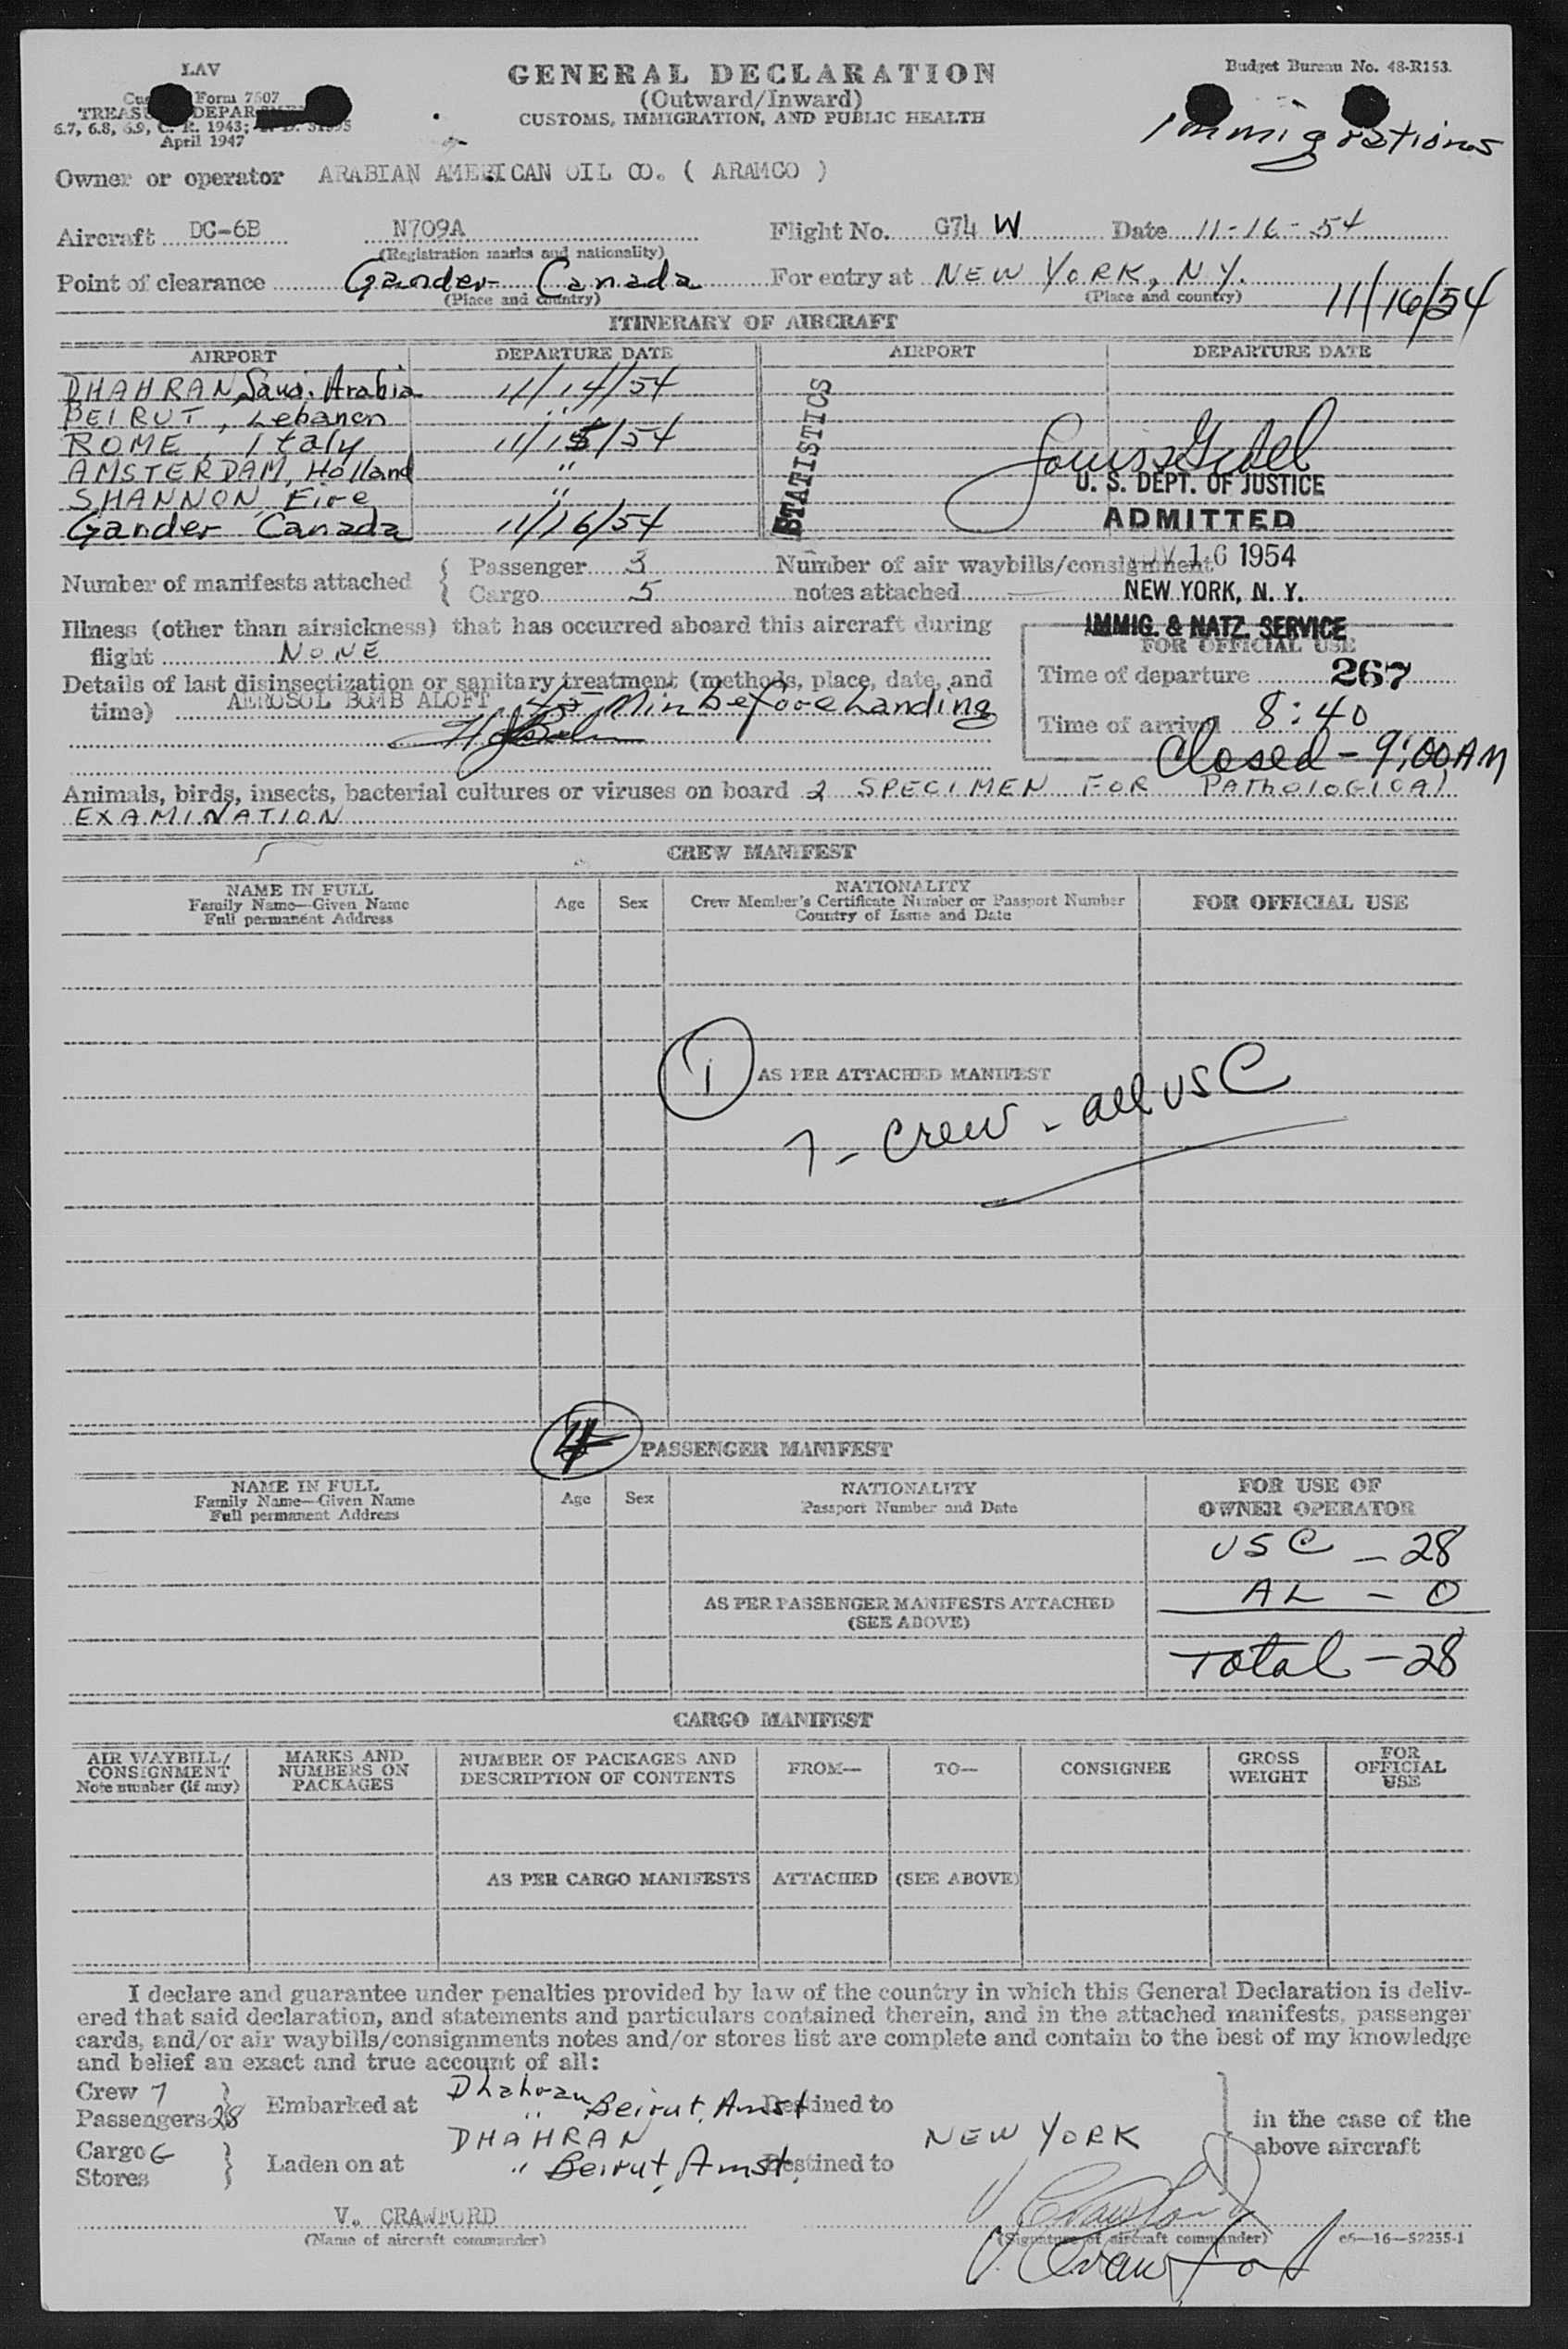 LAV
GENERAL DECLARATION
Budget Bureau No. 48-R153.
Form 7507
(Outward/Inward)
CUSTOMS, IMMIGRATION, AND PUBLIC HEALTH
6.7, 6.8, 6.9, C. R. 1943;
April 1947
Immigrations
Owner or operator ARABIAN AMERICAN OIL CO. ( ARAMCO )
Aircraft DC-6B N709A Flight No. G74 W Date 11-16-54
(Registration marks and nationality)
Point of clearance Gander Canada For entry at NEW YORK, N.Y.
(Place and country) (Place and country)
11/16/54
ITINERARY OF AIRCRAFT
AIRPORT DEPARTURE DATE AIRPORT DEPARTURE DATE
DHAHRAN, Saudi. Arabia 11/14/54
BEIRUT, Lebanon "
ROME, Italy 11/15/54
AMSTERDAM, Holland "
SHANNON, Eire "
Gander Canada 11/16/54
STATISTICS
U. S. DEPT. OF JUSTICE
ADMITTED
NOV 16 1954
NEW YORK, N. Y.
IMMIG. & NATZ. SERVICE
Number of manifests attached { Passenger 3 Number of air waybills/consignment
Cargo 5 notes attached —
Illness (other than airsickness) that has occurred aboard this aircraft during
flight NONE
FOR OFFICIAL USE
Details of last disinsectization or sanitary treatment (methods, place, date, and
time) AEROSOL BOMB ALOFT 45 Min before Landing
Time of departure 267
Time of arrival 8:40
Closed - 9:00 AM
Animals, birds, insects, bacterial cultures or viruses on board 2 SPECIMEN FOR PATHOLOGICAL
EXAMINATION
CREW MANIFEST
NAME IN FULL
Family Name—Given Name
Full permanent Address
Age Sex
NATIONALITY
Crew Member's Certificate Number or Passport Number
Country of Issue and Date
FOR OFFICIAL USE
1 AS PER ATTACHED MANIFEST
7 - Crew - all USC
4 PASSENGER MANIFEST
NAME IN FULL
Family Name—Given Name
Full permanent Address
Age Sex
NATIONALITY
Passport Number and Date
FOR USE OF
OWNER OPERATOR
USC - 28
AL - 0
AS PER PASSENGER MANIFESTS ATTACHED
(SEE ABOVE)
Total - 28
CARGO MANIFEST
AIR WAYBILL/
CONSIGNMENT
Note number (if any)
MARKS AND
NUMBERS ON
PACKAGES
NUMBER OF PACKAGES AND
DESCRIPTION OF CONTENTS
FROM— TO— CONSIGNEE
GROSS
WEIGHT
FOR
OFFICIAL
USE
AS PER CARGO MANIFESTS ATTACHED (SEE ABOVE)
I declare and guarantee under penalties provided by law of the country in which this General Declaration is deliv-
ered that said declaration, and statements and particulars contained therein, and in the attached manifests, passenger
cards, and/or air waybills/consignments notes and/or stores list are complete and contain to the best of my knowledge
and belief an exact and true account of all:
Crew 7 Dhahran
Passengers 28 } Embarked at " Beirut, Amst Destined to
DHAHRAN NEW YORK
in the case of the
above aircraft
Cargo G
Stores } Laden on at " Beirut, Amst. Destined to
V. CRAWFORD V. Crawford
(Name of aircraft commander) (Signature of aircraft commander) c6—16—52255-1
V. Crawford